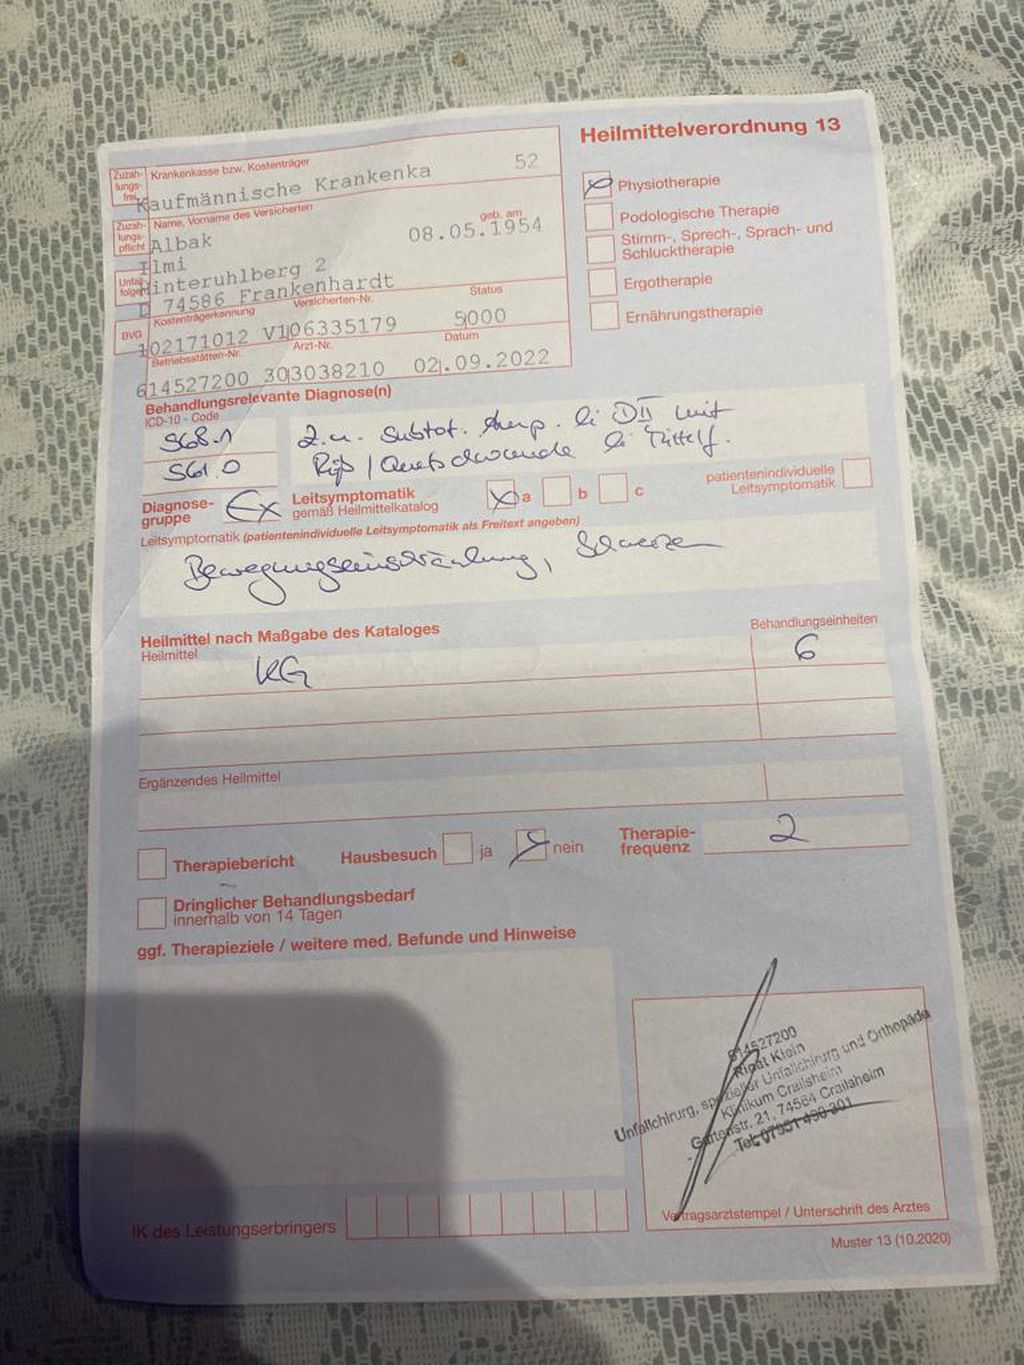 Heilmittelverordnung 13
Zuzah-
lungs-
frei
Krankenkasse bzw. Kostenträger
Kaufmännische Krankenka 52
Zuzah-
lungs-
pflicht
Name, Vorname des Versicherten
Albak
geb. am
08.05.1954
Ilmi
Unfall-
folgen
Hinteruhlberg 2
D 74586 Frankenhardt
BVG
Kostenträgerkennung
Versicherten-Nr.
Status
102171012 V106335179 5000
Betriebsstätten-Nr.
Arzt-Nr.
Datum
614527200 303038210 02.09.2022
Physiotherapie
Podologische Therapie
Stimm-, Sprech-, Sprach- und
Schlucktherapie
Ergotherapie
Ernährungstherapie
Behandlungsrelevante Diagnose(n)
ICD-10 - Code
S68.1
Z.n. Subtot. Amp. li DII mit
S61.0
Riß / Quetschwunde li Mittelf.
Diagnose-
gruppe
Ex
Leitsymptomatik
gemäß Heilmittelkatalog
a b c
patientenindividuelle
Leitsymptomatik
Leitsymptomatik (patientenindividuelle Leitsymptomatik als Freitext angeben)
Bewegungseinschränkung, Schmerzen
Heilmittel nach Maßgabe des Kataloges
Heilmittel
Behandlungseinheiten
KG 6
Ergänzendes Heilmittel
Therapiebericht
Hausbesuch ja nein
Therapie-
frequenz
2
Dringlicher Behandlungsbedarf
innerhalb von 14 Tagen
ggf. Therapieziele / weitere med. Befunde und Hinweise
614527200
Klein
Unfallchirurg, spezieller Unfallchirurg und Orthopäde
Klinikum Crailsheim
Gartenstr. 21, 74564 Crailsheim
Tel. 07951 490 301
IK des Leistungserbringers
Vertragsarztstempel / Unterschrift des Arztes
Muster 13 (10.2020)